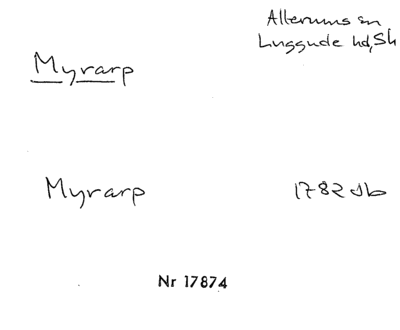 Allerums sn
Luggude hd, Sk
Myrarp
Myrarp 1782 Jb
Nr 17874